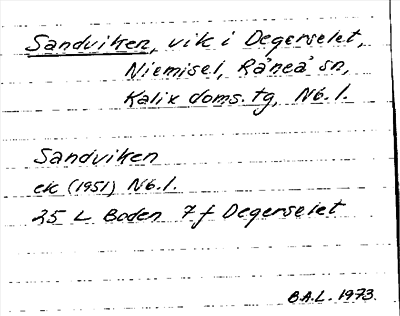 Sandviken, vik i Degerselet,
Niemisel, Råneå sn,
Kalix doms.tg, Nb.l.
Sandviken
ek (1951) Nb.l.
25 L Boden 7 f Degerselet
B.A.L. 1973.